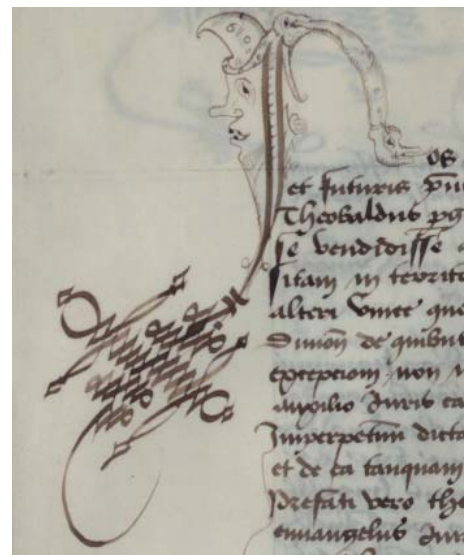 Nos
et futuris
Theobaldus
se vendidisse
sitam in territo
alteri vinee que
Dimon de quibus
excepcioni non
auxilio Juris ca
Imperpetuum dicta
et de ea tanquam
Prefati vero the
euuangelus Jura